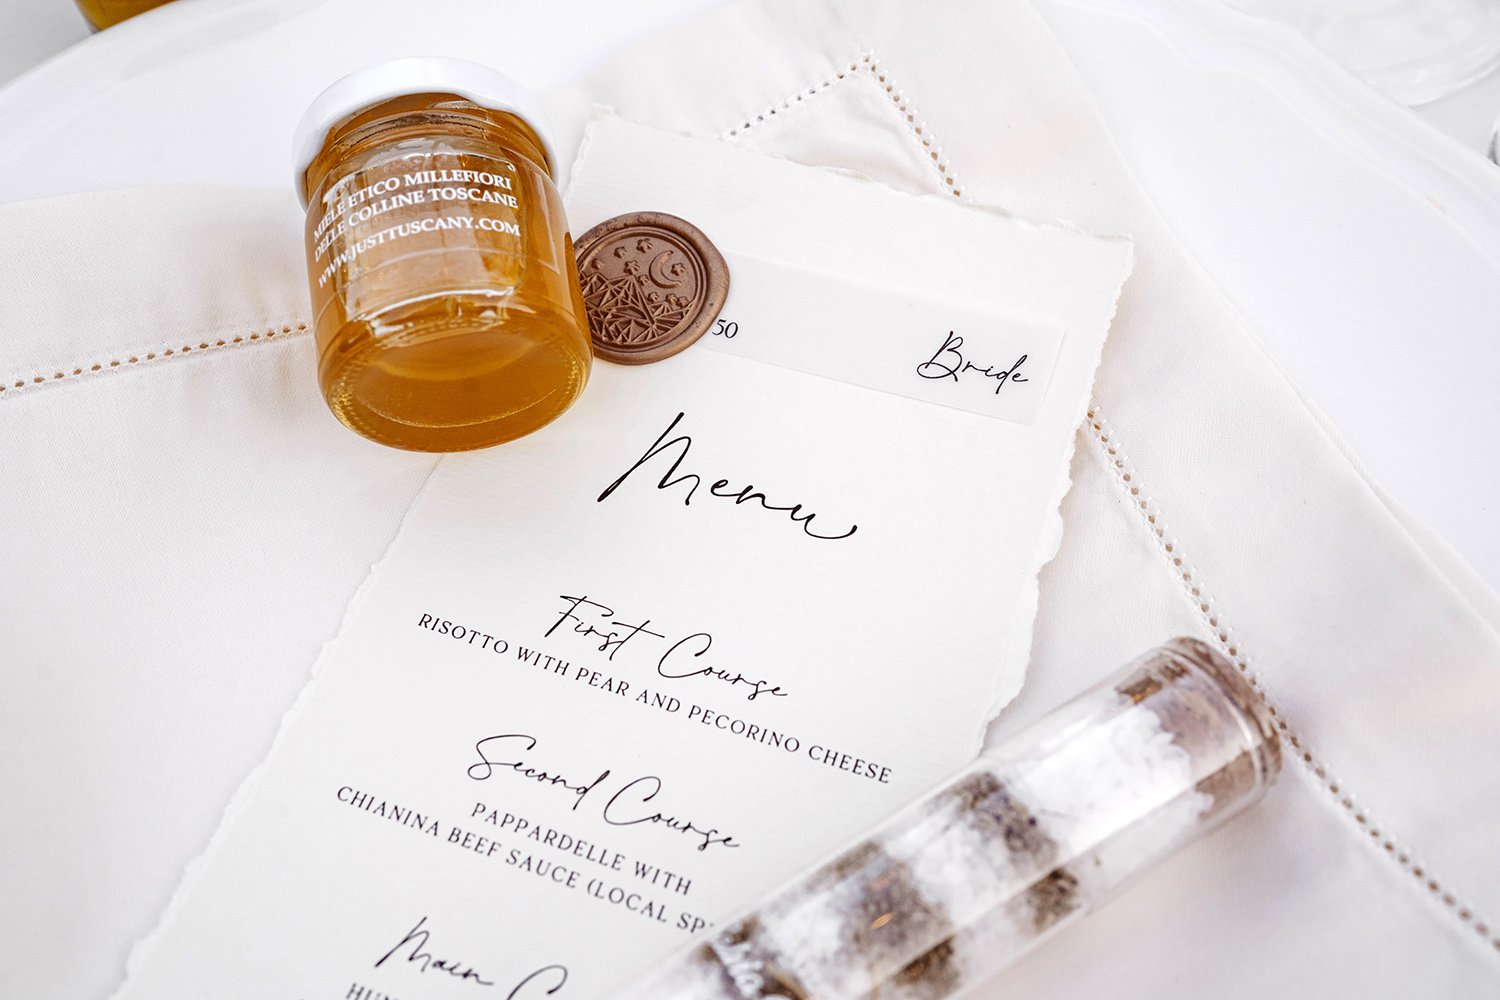 MIELE ETICO MILLEFIORI
DELLE COLLINE TOSCANE
WWW.JUSTTUSCANY.COM
50
Bride
Menu
First Course
RISOTTO WITH PEAR AND PECORINO CHEESE
Second Course
PAPPARDELLE WITH
CHIANINA BEEF SAUCE (LOCAL
Main